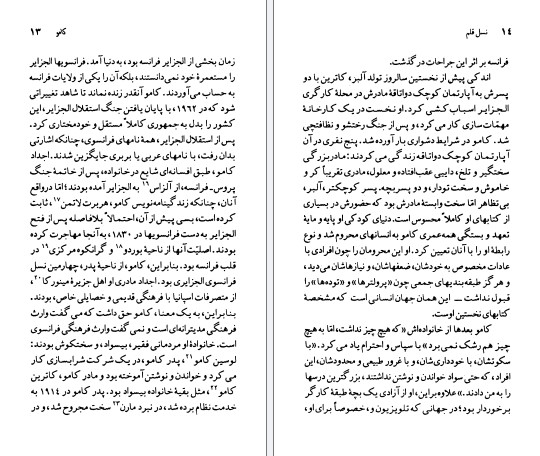 کامو ۱۳
زمان بخشی از الجزایر فرانسه بود، به‌دنیا آمد. فرانسویها الجزایر
را مستعمرهٔ خود نمی‌دانستند، بلکه آن را یکی از ولایات فرانسه
به حساب می‌آوردند. کامو آنقدر زنده نماند تا شاهد تغییراتی
باشد که در ۱۹۶۲، با پایان یافتن جنگ استقلال الجزایر، این
کشور را بدل به جمهوری کاملاً مستقل و خودمختاری کرد.
پس از استقلال الجزایر، همهٔ نامهای فرانسوی، چنانکه اشارتی
بدان رفت، با نامهای عربی یا بربری جایگزین شدند. اجداد
کامو، طبق افسانه‌ای شایع در خانواده، پس از خاتمهٔ جنگ
پروس-فرانسه، از آلزاس۱۶ به الجزایر آمده بودند؛ اما در واقع
آنان، چنانکه زندگینامه‌نویس کامو، هربرت لاتمن۱۷، ثابت
کرده است، بسی پیش از آن، احتمالاً بلافاصله پس از فتح
الجزایر به دست فرانسویها در ۱۸۳۰، به آنجا مهاجرت کرده
بودند. اصلیّت آنها از ناحیهٔ بوردو۱۸ و گرانکوه مرکزی۱۹ در
قلب فرانسه بود. بنابراین، کامو، از ناحیهٔ پدر، چهارمین نسل
فرانسوی الجزایری بود. اجداد مادری او اهل جزیرهٔ مینورکا۲۰،
از متصرفات اسپانیا با فرهنگی قدیمی و خصایلی خاص، بودند.
بنابراین، به یک معنا، کامو حق داشت که می‌گفت وارث
فرهنگی مدیترانه‌ای است و نمی‌گفت وارث فرهنگی فرانسوی
است. خانوادهٔ او مردمانی فقیر، بیسواد، و سختکوش بودند:
لوسین کامو۲۱، پدر کامو، در یک شرکت شرابسازی کار
می‌کرد و خواندن و نوشتن آموخته بود و مادر کامو، کاترین
کامو۲۲، مثل بقیهٔ خانواده بیسواد بود. پدر کامو در ۱۹۱۴ به
خدمت نظام برده شد، در نبرد مارن۲۳ سخت مجروح شد، و در
۱۴ نسل قلم
فرانسه بر اثر این جراحات در گذشت.
اندکی پیش از نخستین سالروز تولد آلبر، کاترین با دو
پسرش به آپارتمان کوچک دواتاقهٔ مادرش در محلهٔ کارگری
الجزایر اسباب‌کشی کرد. او نخست در یک کارخانهٔ
مهمّات‌سازی کار می‌کرد، و پس از جنگ رختشو و نظافتچی
شد. کامو در شرایط دشواری بار آورده شد. پنج نفری در آن
آپارتمان کوچک دواتاقه زندگی می‌کردند: مادربزرگی
سختگیر و تلخ، دایی عقب‌افتاده و معلول، مادری تقریباً کر و
خاموش و سخت تودار، و دو پسربچه. پسر کوچکتر، آلبر،
بی‌تظاهر اما سخت وابستهٔ مادرش بود که حضورش در بسیاری
از کتابهای او کاملاً محسوس است. دنیای کودکی او پایه و مایهٔ
تعهد و بستگی همه‌عمری کامو به انسانهای محروم شد و نوع
رابطهٔ او را با آنان تعیین کرد. او این محرومان را چون افرادی با
عادات مخصوص به خودشان، ضعفهاشان، و نیازهاشان می‌دید،
و هرگز طبقه‌بندیهای جمعی چون «پرولترها» و «توده‌ها» را
قبول نداشت — این همان جهان انسانی است که مشخصهٔ
کتابهای نخستین اوست.
کامو بعدها از خانواده‌اش «که هیچ چیز نداشت، امّا به هیچ
چیز هم رشک نمی‌برد» با سپاس و احترام یاد می‌کرد. «با
سکوتشان، با خودداریشان، و با غرور طبیعی و محدودشان، این
افراد، که حتی سواد خواندن و نوشتن نداشتند، بزرگترین درسها
را به من دادند.» علاوه بر این، او از آزادی یک بچهٔ طبقهٔ کارگر
برخوردار بود؛ در جهانی که تلویزیون و، خصوصاً برای او،